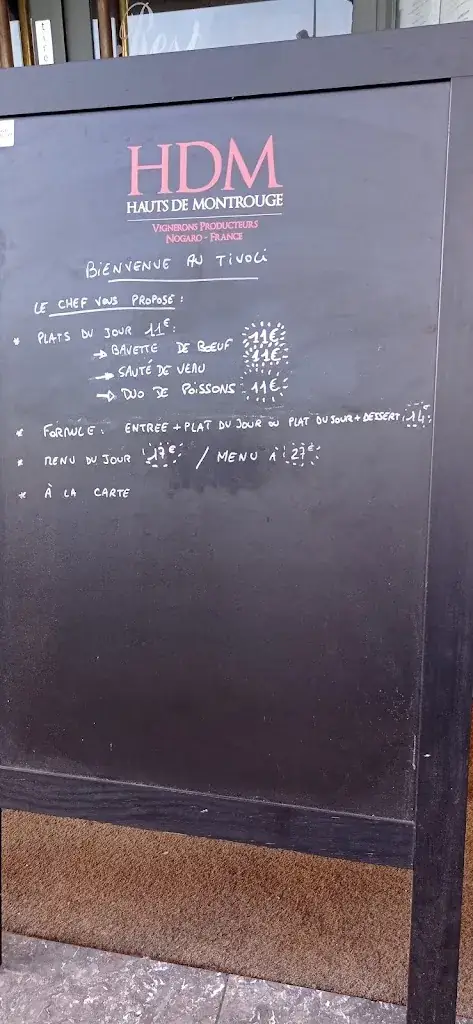 HDM
HAUTS DE MONTROUGE
VIGNERONS PRODUCTEURS
NOGARO - FRANCE
BIENVENUE AU TIVOLI
LE CHEF VOUS PROPOSE :
* PLATS DU JOUR 11€:
→ BAVETTE DE BOEUF 11€
→ SAUTÉ DE VEAU 11€
→ DUO DE POISSONS 11€
* FORMULE : ENTREE + PLAT DU JOUR OU PLAT DU JOUR + DESSERT 14€
* MENU DU JOUR 17€ / MENU À 27€
* À LA CARTE